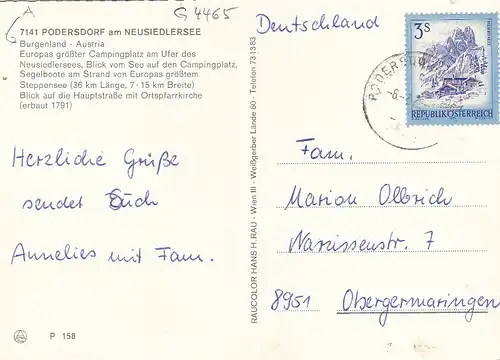 A
G 4465
7141 PODERSDORF am NEUSIEDLERSEE
Burgenland - Austria
Europas größter Campingplatz am Ufer des
Neusiedlersees, Blick vom See auf den Campingplatz,
Segelboote am Strand von Europas größtem
Steppensee (36 km Länge, 7-15 km Breite)
Blick auf die Hauptstraße mit Ortspfarrkirche
(erbaut 1791)
Herzliche Grüße
sendet Euch
Annelies mit Fam.
P 158
RAUCOLOR HANS H. RAU - Wien III - Weißgerber Lände 60 - Telefon 73 13 83
Deutschland
3S
REPUBLIK ÖSTERREICH
PODERSDO
Fam.
Marion Olbrich
Narzissenstr. 7
8951 Obergermaringen